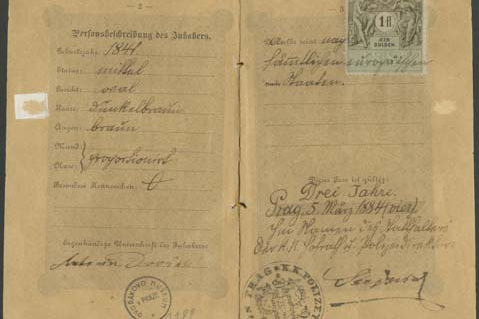 2
Personsbeschreibung des Inhabers.
Geburtsjahr: 1841
Statur: mittel
Gesicht: oval
Haare: dunkelbraun
Augen: braun
Mund
Nase } proportionirt
Besondere Kennzeichen:
Eigenhändige Unterschrift des Inhabers:
Antonín Dvořák
DVOŘÁKOVO MUSEUM
PRAZE
3
nach
1 fl
EIN
GULDEN
sämtlichen europäischen
Staaten.
Dieser Pass ist gültig:
Drei Jahre.
Prag, 5. März 1884 (vier)
Im Namen des Statthalters
Der k. k. Hofrath u. Polizeidirektor
PRAG K.K. POLIZEI